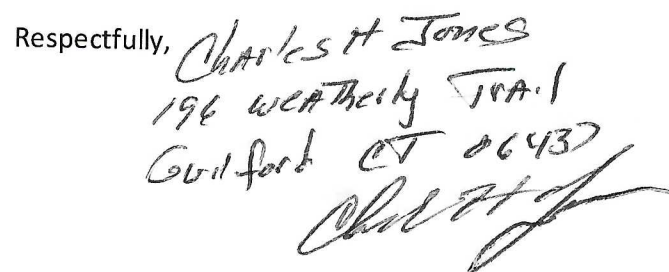 Respectfully, Charles H Jones
196 Weatherly Trail
Guilford CT 06437